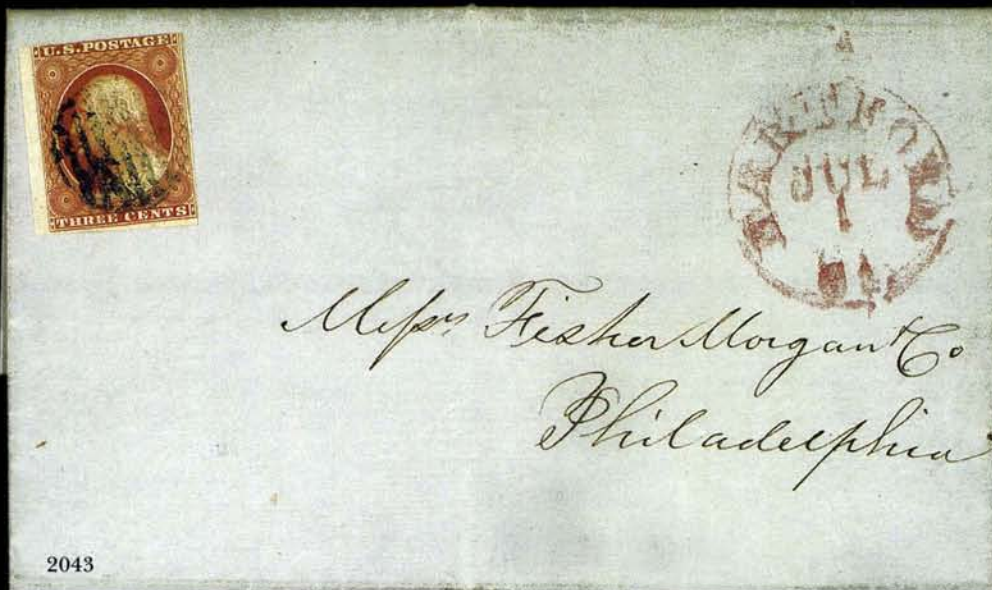 U.S. POSTAGE
THREE CENTS
HARTFORD
JUL
1
Messrs Fisher Morgan & Co
Philadelphia
2043